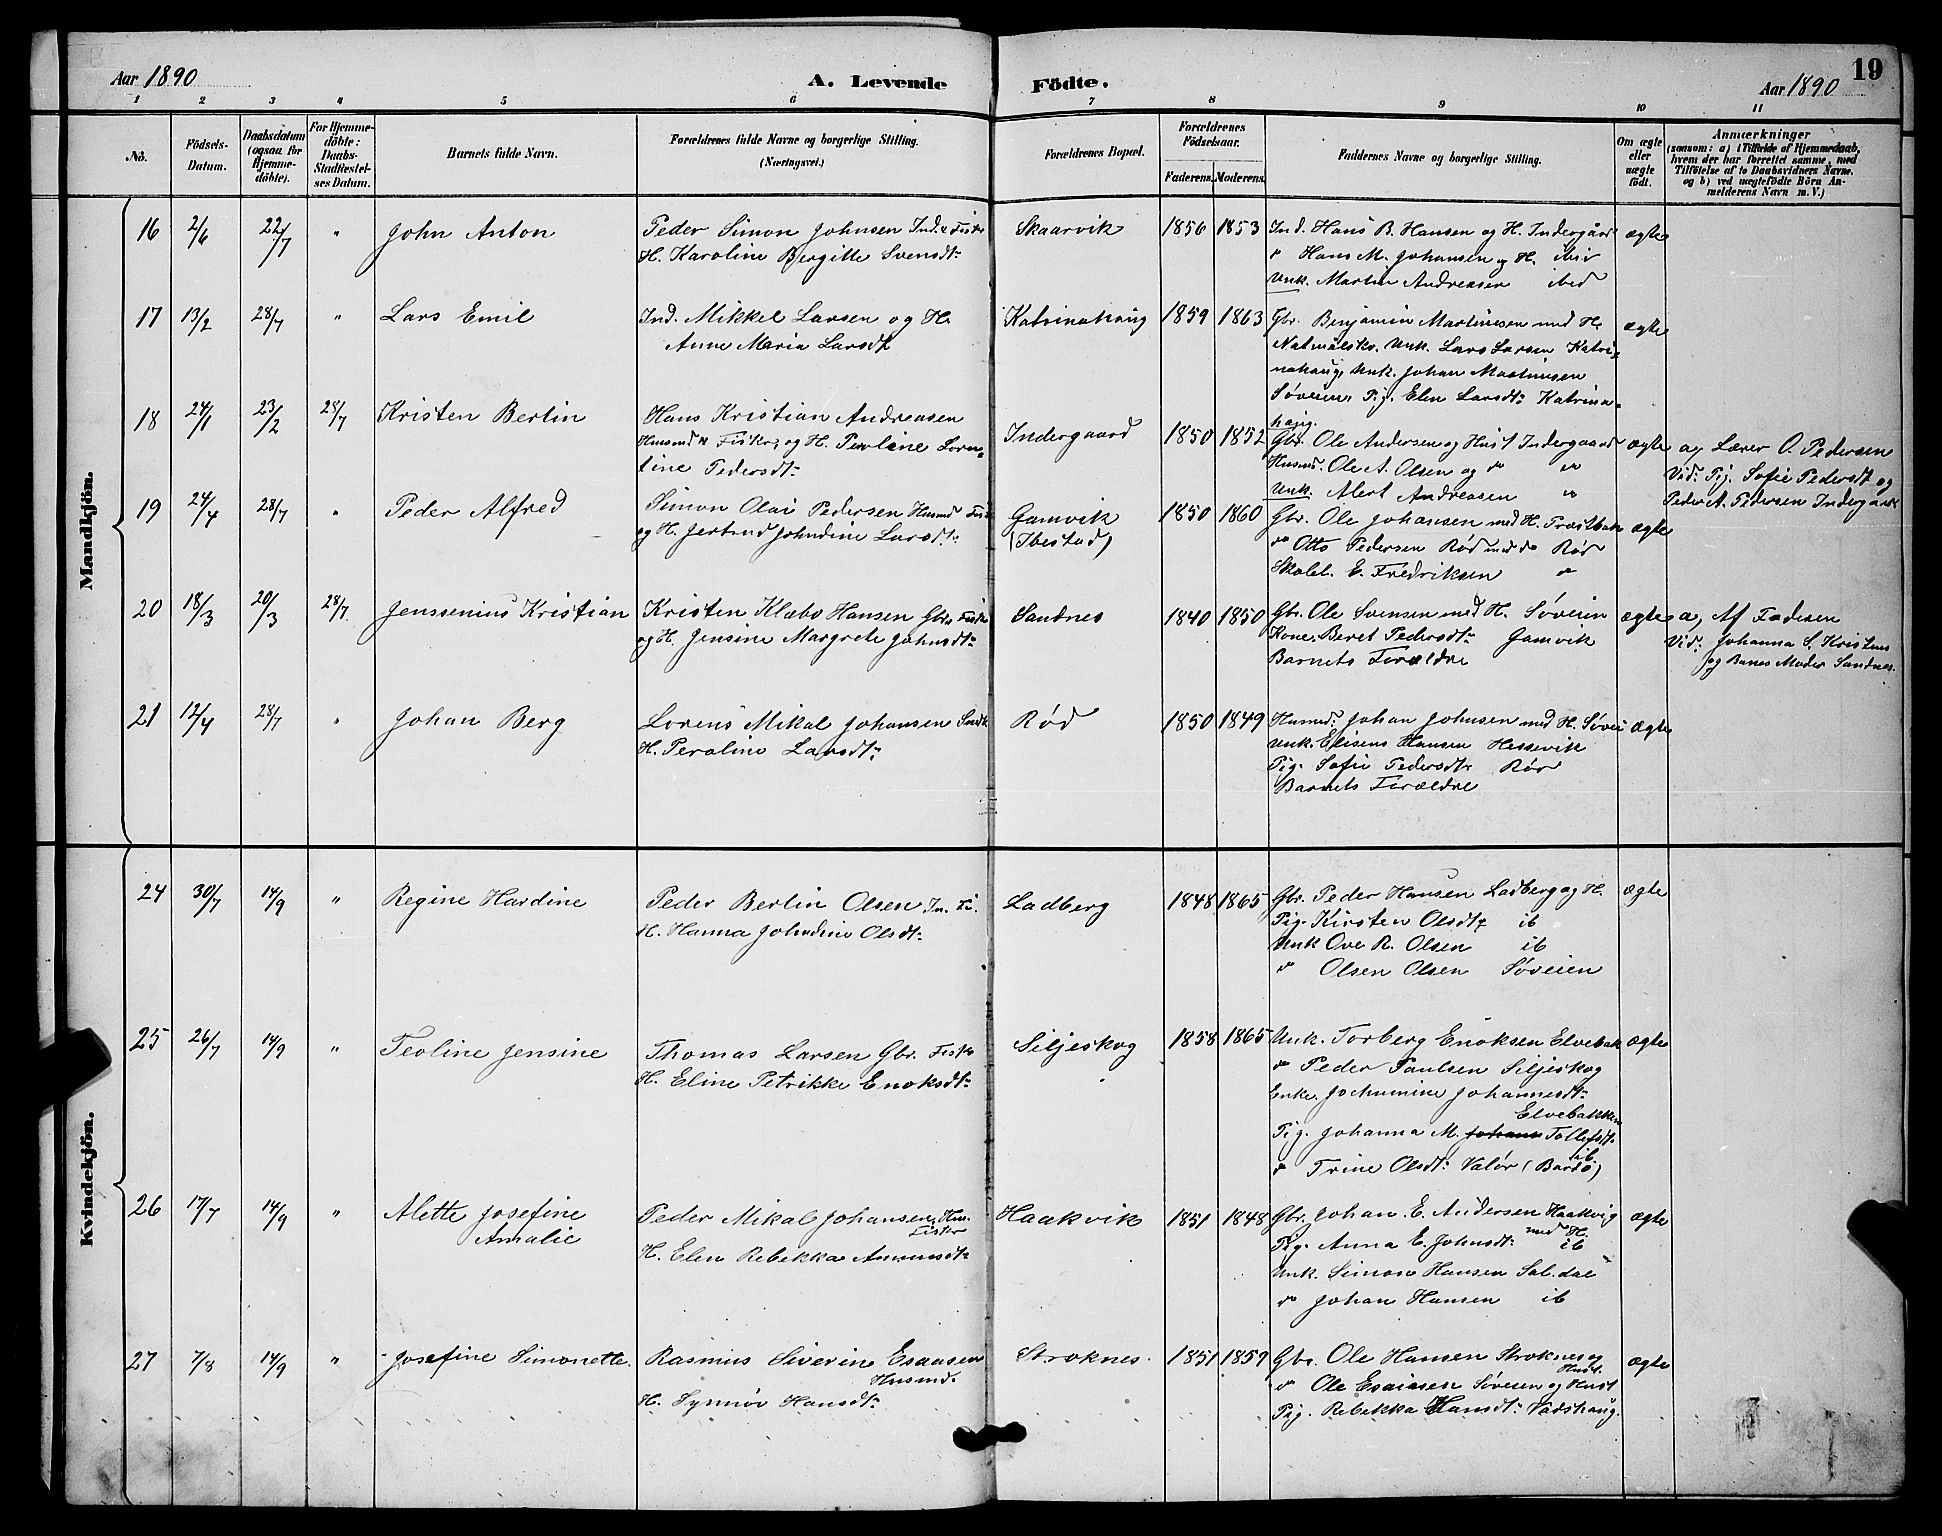 Aar 1890
A. Levende Födte.
Aar 1890
19
1 2 3 4 5 6 7 8 9 10 11
No.
Födsels-Datum.
Daabsdatum (ogsaa for Hjemme-döbte).
For Hjemme-döbte: Daabs-Stadfæstel-ses Datum.
Barnets fulde Navn.
Forældrenes fulde Navne og borgerlige Stilling. (Næringsvei.)
Forældrenes Bopæl.
Forældrenes Födselsaar.
Faderens. Moderens.
Faddernes Navne og borgerlige Stilling.
Om ægte eller uægte födt.
Anmærkninger
(saasom: a) i Tilfælde af Hjemmedaab,
hvem der har forrettet samme, med
Tilföielse af to Daabsvidners Navne,
og b) ved uægtefödte Börn An-
melderens Navn m. V.)
Mandkjön.
16 2/6 22/7 " John Anton
Peder Simon Johnsen Ind. & Fisk
H. Karoline Bergitte Svensdt:
Skaarvik 1856 1853
Ind. Hans B. Hansen og H. Indergård
" Hans M. Johansen og H. ibid
Unk. Martin Andreasen ibid
ægte
17 13/2 28/7 " Lars Emil
Ind. Mikkel Larsen og H.
Anne Maria Larsdt
Katrinahaug 1859 1863
Gbr. Benjamin Martinesen med H.
Natmålsko. Unk. Lars Larsen Katri-
nahaug, Unk. Johan Martinesen
Søveien, Pig. Elen Larsdt: Katrina-
haug.
ægte
18 24/1 23/2 28/7 Kristen Berlin
Hans Kristian Andreasen
Husmd & Fisker, og H. Peroline Loren-
tine Pedersdt:
Indergaard 1850 1852
Gbr. Ole Andersen og Hust Indergaard
Husmd. Ole A. Olsen og do "
Unk. Alert Andreasen "
ægte
a, Lærer O. Pedersen
Vid: Pig. Sofie Pedersdt og
Peder A. Pedersen Indergaard
19 24/4 28/7 " Peder Alfred
Simon Olai Pedersen Husmd Fisk
og H. Jertrud Johndine Larsdt:
Gamvik
(Ibestad)
1850 1860
Gbr. Ole Johansen med H. Trastbak
do Otto Pedersen Rød med do Rød
Skolel. E. Fredriksen "
ægte
20 18/3 20/3 28/7 Jenssenius Kristian
Kristen Klæbo Hansen Gbr. Fisk
og H. Jensine Margrete Johnsdt:
Sandnes 1840 1850
Gbr. Ole Svensen med H. Søveien
Kone. Beret Pedersdt: Gamvik
Barnets Forældre
ægte
a, Af Faderen
Vid: Johanna S. Kristens
og Barnes Moder Sandnes.
21 12/4 28/7 " Johan Berg
Lorens Mikal Johansen
H. Peroline Larsdt:
Rød 1850 1849
Husmd: Johan Johnsen med H. Søvei
Unk. Elisens Hansen Hessevik
Pig. Sofie Pedersdt: Rød
Barnets Forældre
ægte
Kvindekjön.
24 30/7 14/9 " Regine Hardine
Peder Berlin Olsen In. Fi.
H. Hanna Johndine Olsdt:
Ladberg 1848 1865
Gbr. Peder Hansen Ladberg og H.
Pig. Kirsten Olsdt: ib
Unk Ove R. Olsen ib
do Olsen Olsen Søveien
ægte
25 26/7 14/9 " Teoline Jensine
Thomas Larsen Gbr. Fisk
H. Eline Petrikke Enoksdt:
Siljeskog 1858 1865
Unk. Torberg Enoksen Elvebak
do Peder Paulsen Siljeskog
Enke. Jochumine Johannesdt:
Elvebakken
Pig. Johanna M. Johann Tollefsdt:
ib
do Trine Olsdt: Valør (Bardo)
ægte
26 17/7 14/9 " Alette Josefine
Amalie
Peder Mikal Johansen, Hus.
Fisker
H. Elen Rebekka Amundsdt:
Haakvik 1851 1848
Gbr. Johan. E. Andersen Haakvig
med H.
Pig. Anna E. Johnsdt: ib
Unk. Simon Hansen Sal.dal
do Johan Hansen ib
ægte
27 7/8 14/9 " Josefine Simonette.
Rasmus Siverin Esaasen
Husmd.
H. Synnøv Hansdt:
Stroknes. 1851 1859
Gbr. Ole Hansen Stroknes og
Hust.
do Ole Esaiasen Søveien og Hust
Pig. Rebekka Hansdt: Vadshaug.
ægte